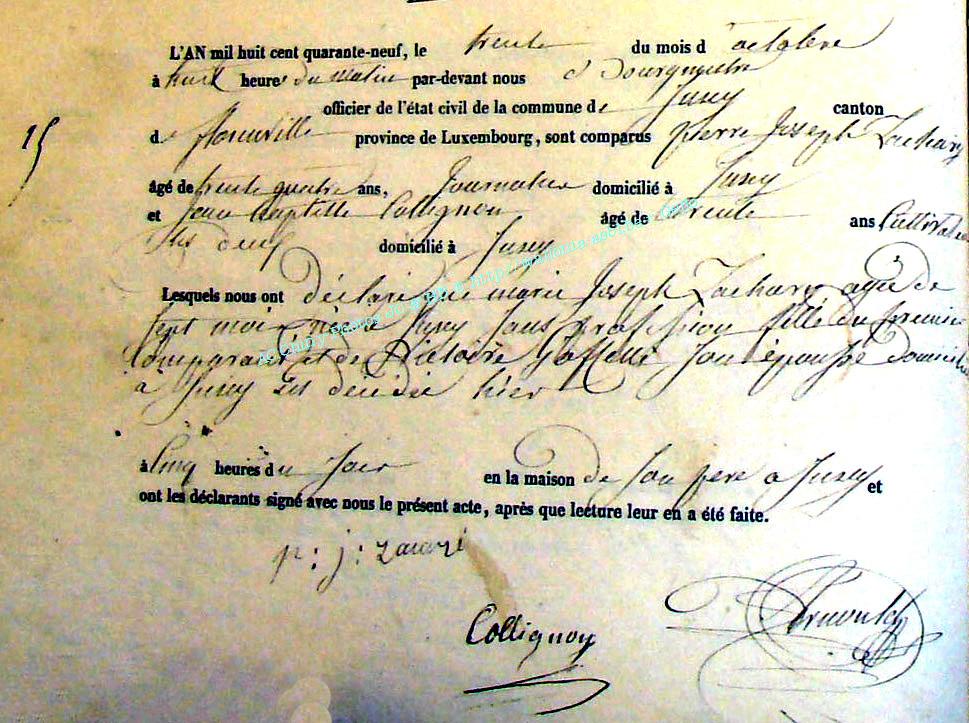 15
L'AN mil huit cent quarante-neuf, le trente du mois d'octobre
à huit heures du matin par-devant nous Bourgmestre
officier de l'état civil de la commune de Jusey canton
de florenville province de Luxembourg, sont comparus pierre Joseph Zachary
âgé de trente quatre ans, Journalier domicilié à Jusey
et Jean Baptiste Collignon âgé de trente ans Cultivateur
domicilié à Jusey
Lesquels nous ont déclaré que marie Joseph Zachary agée de
sept mois née à Jusey sans profession fille du premier
comparant et de Victoire son épouse domiciliée
à Jusey est décédée hier
à cinq heures du soir en la maison de son père a Jusey et
ont les déclarants signé avec nous le présent acte, après que lecture leur en a été faite.
p: j: zacari
Collignon